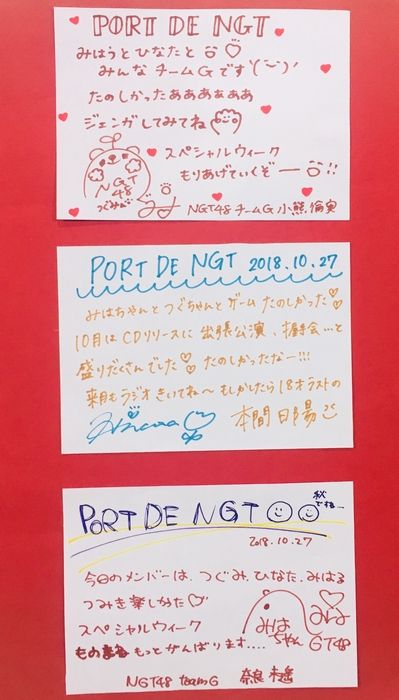 PORT DE NGT
みはうとひなたと
みんな チームGです
たのしかったあああああああ
ジェンガしてみてね
スペシャルウィーク
もりあげていくぞー!!
NGT
48
つぐみん
NGT48 チームG 小熊倫実
PORT DE NGT 2018.10.27
みはちゃんとつぐちゃんとゲームたのしかった
10月はCDリリースに出張公演、握手会…と
盛りだくさんでした たのしかったなー!!!
来月もラジオきいてね〜もしかしたら18才ラストの
Hinata
本間日陽
PORT DE NGT
秋
ですねー
2018.10.27
今日のメンバーは、つぐみ、ひなた、みはる
つみき楽しかた
スペシャルウィーク
ものまね もっとがんばります....
みは
ちゃん
GT48
NGT48 teamG 奈良未遥